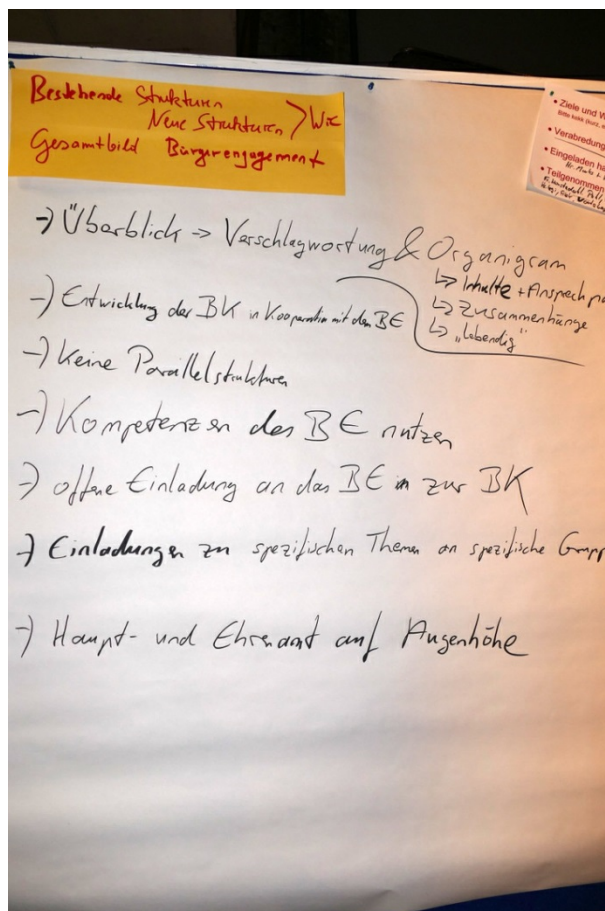 Bestehende Strukturen
Neue Strukturen > Wie
Gesamtbild Bürgerengagement
• Ziele und W
• Verabredung
• Eingeladen ha
• Teilgenommen
-> Überblick -> Verschlagwortung & Organigram
↳ Inhalte + Ansprechp
↳ Zusammenhänge
↳ "lebendig"
-> Entwicklung der BK in Kooperation mit dem BE
-> Keine Parallelstrukturen
-> Kompetenzen des BE nutzen
-> offene Einladung an das BE zur BK
-> Einladungen zu spezifischen Themen an spezifische Grupp
-> Haupt- und Ehrenamt auf Augenhöhe